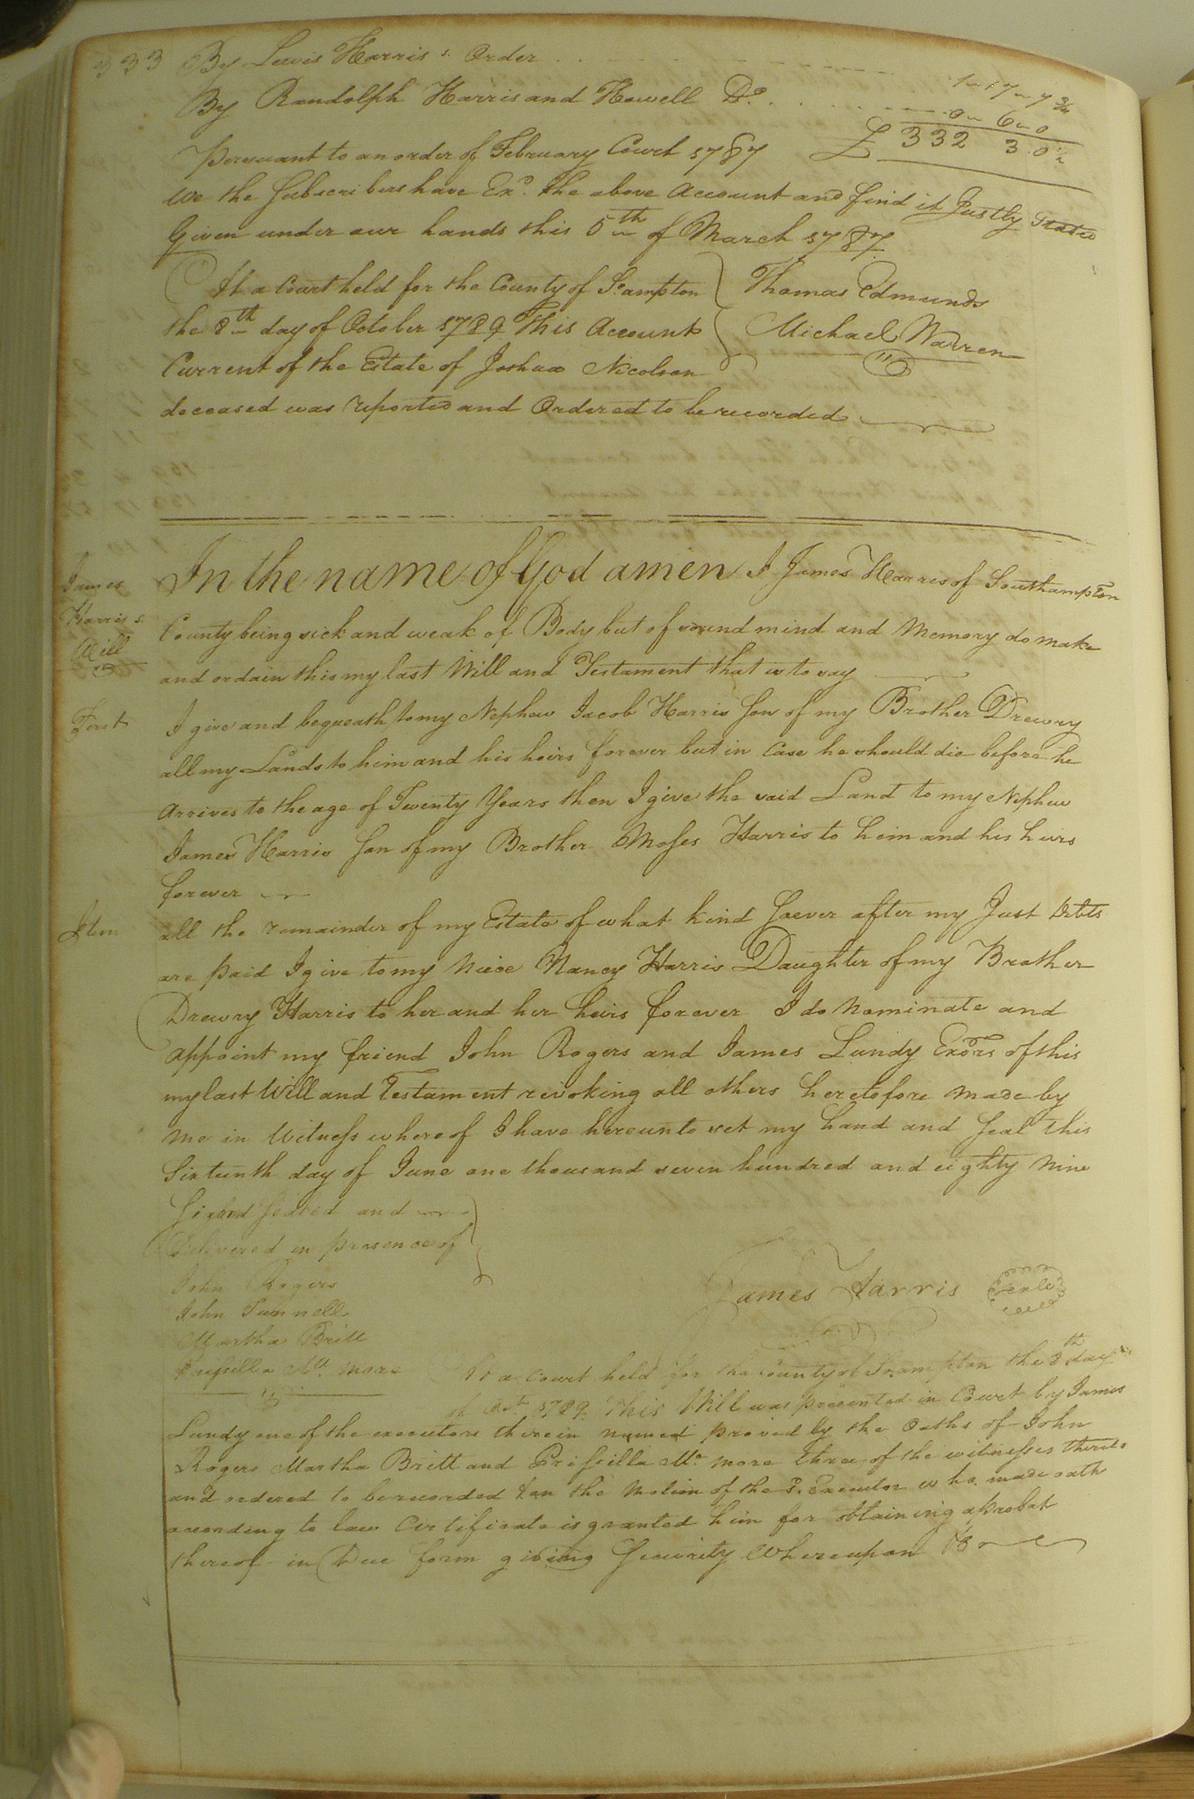 333 By Lewis Harris s. Order
1 - 17 - 7 3/4
By Randolph Harris and Howell Do.
0 - 6 - 0
£ 332 3. 0 1/2
Persuant to an order of February Court 1787
We the Subscribers have Exd. the above Account and find it Justly Stated
Given under our hands this 5th of March 1787
At a Court held for the County of So.ampton
Thomas Edmunds
the 8th day of October 1789 This Account
Michael Warren
Current of the Estate of Joshua Nicolson
deceased was reported and Ordered to be recorded
James
Harris s.
Will
In the name of God amen I James Harris of Southampton
County being sick and weak of Body but of sound mind and Memory do make
and ordain this my last Will and Testament that is to say
First I give and bequeath to my Nephew Jacob Harris Son of my Brother Drewry
all my Lands to him and his heirs forever but in Case he should die before he
Arrives to the age of Twenty Years then I give the said Land to my Nephew
James Harris Son of my Brother Moses Harris to him and his heirs
forever
Item all the remainder of my Estate of what kind Soever after my Just Debts
are paid I give to my Niece Nancy Harris Daughter of my Brother
Drewry Harris to her and her heirs forever I do Nominate and
appoint my friend John Rogers and James Lundy Exors of this
my last Will and Testament revoking all others heretofore made by
me in Witness whereof I have hereunto set my hand and Seal this
Sixteenth day of June one thousand seven hundred and eighty Nine
Signed Sealed and
Delivered in presence of
John Rogers
James Harris Seale
John Sunnell
Martha Britt
Prissilla Mc. more
At a Court held for the County of So.ampton the 8th day
of Octr. 1789 This Will was presented in Court by James
Lundy one of the executors therein named proved by the Oaths of John
Rogers Martha Britt and Prissilla Mc. more three of the witnesses thereto
and ordered to be recorded & on the Motion of the sd. Executor who made oath
according to law Certificate is granted him for obtaining a probat
thereof in Due form giving Security Whereupon &c